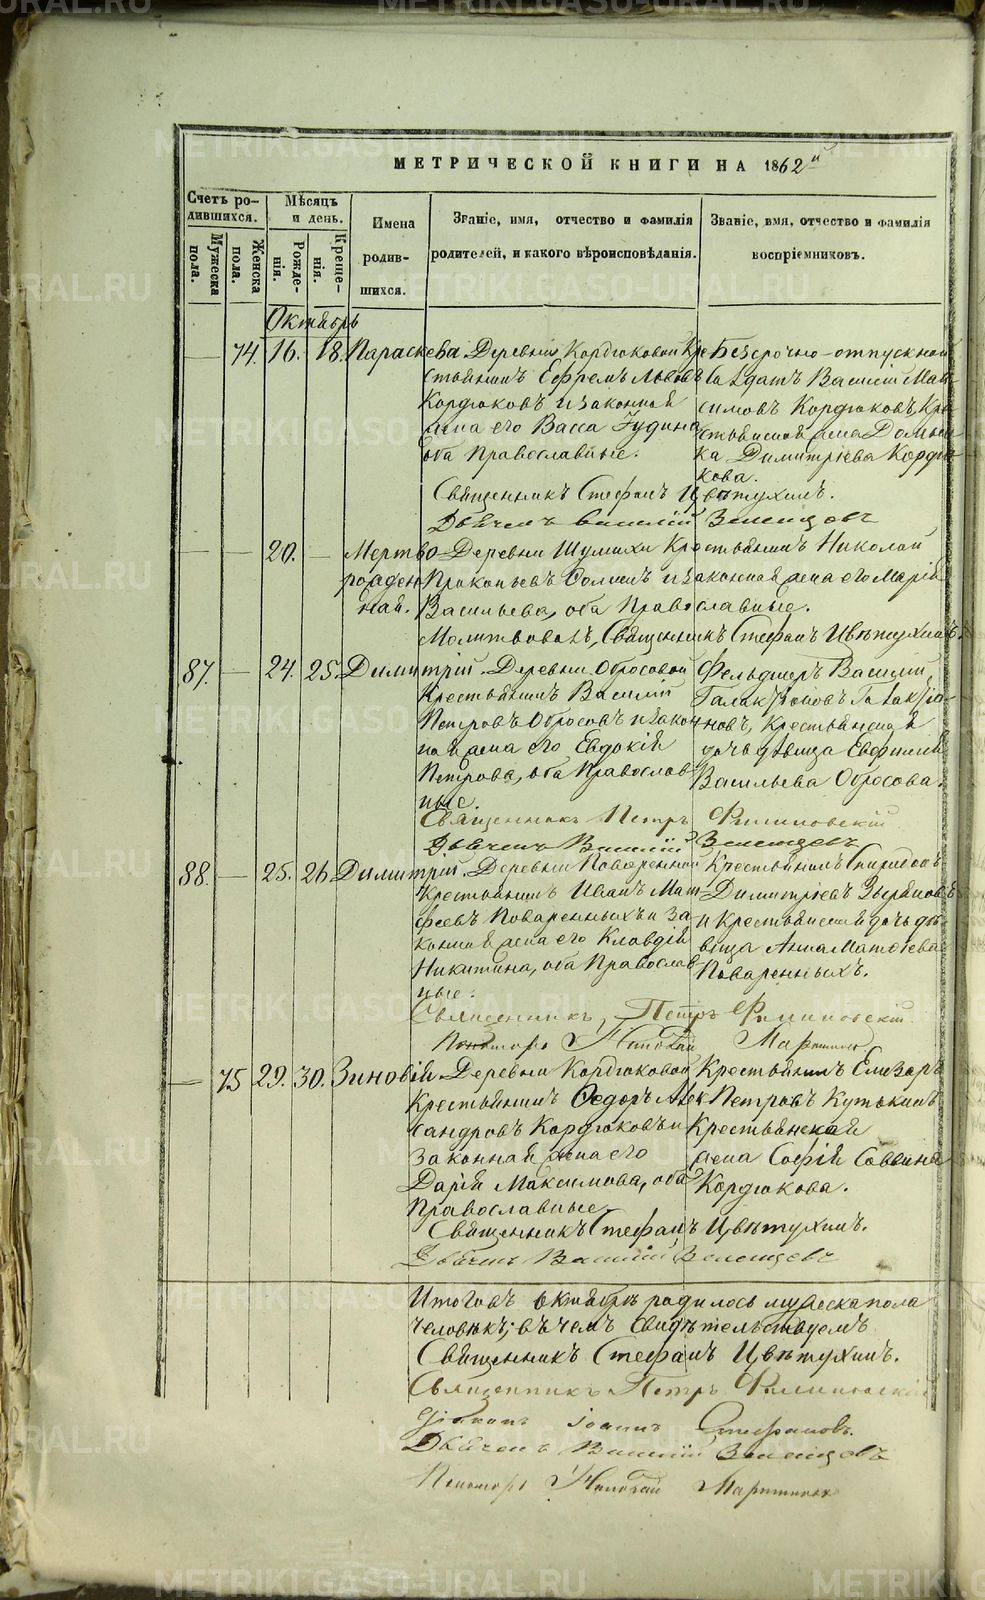 МЕТРИЧЕСКОЙ КНИГИ НА 1862й
Счетъ родившихся.
Мѣсяцъ и день.
Имена родившихся.
Званіе, имя, отчество и фамилія родителей, и какого вѣроисповѣданія.
Званіе, имя, отчество и фамилія воспріемниковъ.
Мужеска пола.
Женска пола.
Рожденія.
Крещенія.
Октябрь
— 74. 16. 18. Параскева
Деревни Кордюковой Кре
стьянинъ Ефремъ Львовъ
Кордюковъ и законная
жена его Васса Іудина
оба Православные.
Безсрочно-отпускной
Солдатъ Василій Мак
симовъ Кордюковъ, Кре
стьянская жена Домни
ка Димитріева Кордю
кова.
Священникъ Стефанъ Цвѣтухинъ.
Дьячекъ Василій Зеленцовъ
— — 20. — Мертво
рожден
ная.
Деревни Шумихи Крестьянинъ Николай
Прокопьевъ и законная жена его Марія
Васильева, оба Православные.
Молитвовалъ, Священникъ Стефанъ Цвѣтухинъ.
87. — 24. 25. Димитрій.
Деревни Обросовой
Крестьянинъ Василій
Петровъ Обросовъ и закон
ная жена его Евдокія
Петрова, оба Православ
ные.
Фельдшеръ Василій
Галактіоновъ Галактіо
новъ, Крестьянская
дочь дѣвица Евфимія
Васильева Обросова.
Священникъ Петръ Филиповскій
Дьячекъ Василій Зеленцовъ
88. — 25. 26. Димитрій.
Деревни Поваренной
Крестьянинъ Иванъ Мат
феевъ Поваренныхъ и за
конная жена его Клавдія
Никитина, оба Православ
ные.
Крестьянинъ Спиридонъ
Димитріевъ Зыряновъ
и Крестьянская дочь дѣ
вица Анна Матфеева
Поваренныхъ.
Священникъ Петръ Филиповскій
Пономарь Николай
— 75 29. 30. Зиновія
Деревни Кордюковой
Крестьянинъ Ѳедоръ Алек
сандровъ Кордюковъ и
законная жена его
Дарія Максимова, оба
Православные.
Крестьянинъ Елизаръ
Петровъ Кутькинъ
Крестьянская
жена Софія Саввина
Кордюкова.
Священникъ Стефанъ Цвѣтухинъ.
Дьячекъ Василій Зеленцовъ
Итого въ октябрѣ родилось мужеска пола
человѣкъ; въ чемъ свидѣтельствуемъ
Священникъ Стефанъ Цвѣтухинъ.
Священникъ Петръ Филиповскій
Діаконъ Іоаннъ Стефановъ.
Дьячекъ Василій Зеленцовъ
Пономарь Николай
METRIKI.GASO-URAL.RU